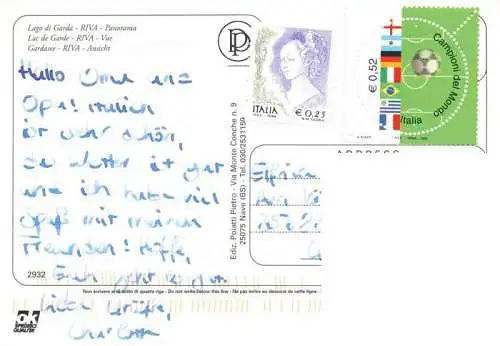 Lago di Garda - RIVA - Panorama
Lac de Garde - RIVA - Vue
Gardasee - RIVA - Ansicht
Hallo Oma und
Opa! Italien
ist sehr schön,
das Wetter ist gut
und ich habe viel
Spaß mit meinen
Freunden! Hoffe,
Euch geht es gut
Liebe Grüße,
Charlotte
2932
Ediz. Poiatti Pietro - Via Monte Conche n. 9
25075 Nave (BS) - Tel. 030/2531159
P
ITALIA
€ 0,23
€ 0,52
Campioni del Mondo
Italia
ADDRESS
Non scrivere al di sotto di questa riga - Do not write below this line - Ne pas écrire au dessous de cette ligne
ok